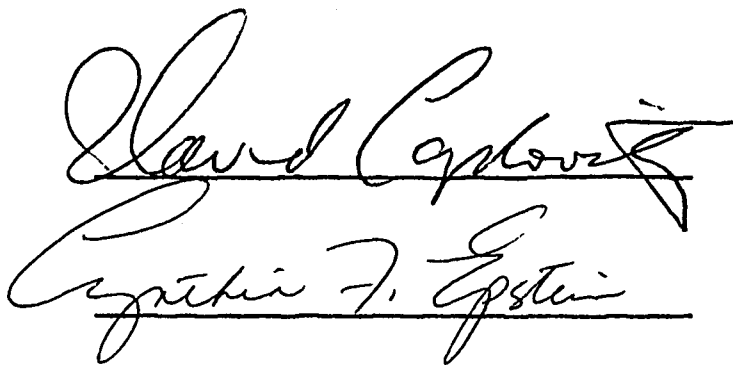 David Caplovitz
Cynthia F. Epstein